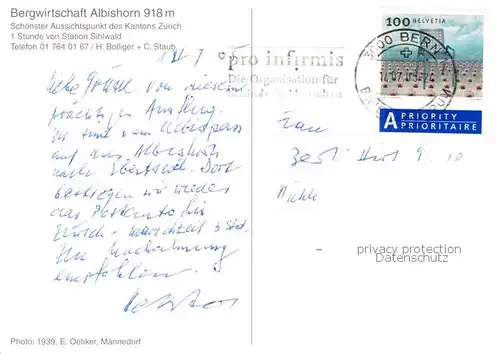 Bergwirtschaft Albishorn 918 m
Schönster Aussichtspunkt des Kantons Zürich
1 Stunde von Station Sihlwald
Telefon 01 764 01 67 / H. Bolliger + C. Staub
100 HELVETIA
3000 BERN
pro infirmis
Die Organisation für
A PRIORITY
PRIORITAIRE
Liebe Grüsse von diesem
prächtigen Ausflug.
Wir sind vom Albispass
auf das Albishorn
nach Ebertswil. Dort
bestiegen wir wieder
das Postauto bis
Zürich. Marschzeit 3 Std.
Zur Nachahmung
empfohlen.
Frau
privacy protection
Datenschutz
Photo: 1939, E. Oetiker, Männedorf